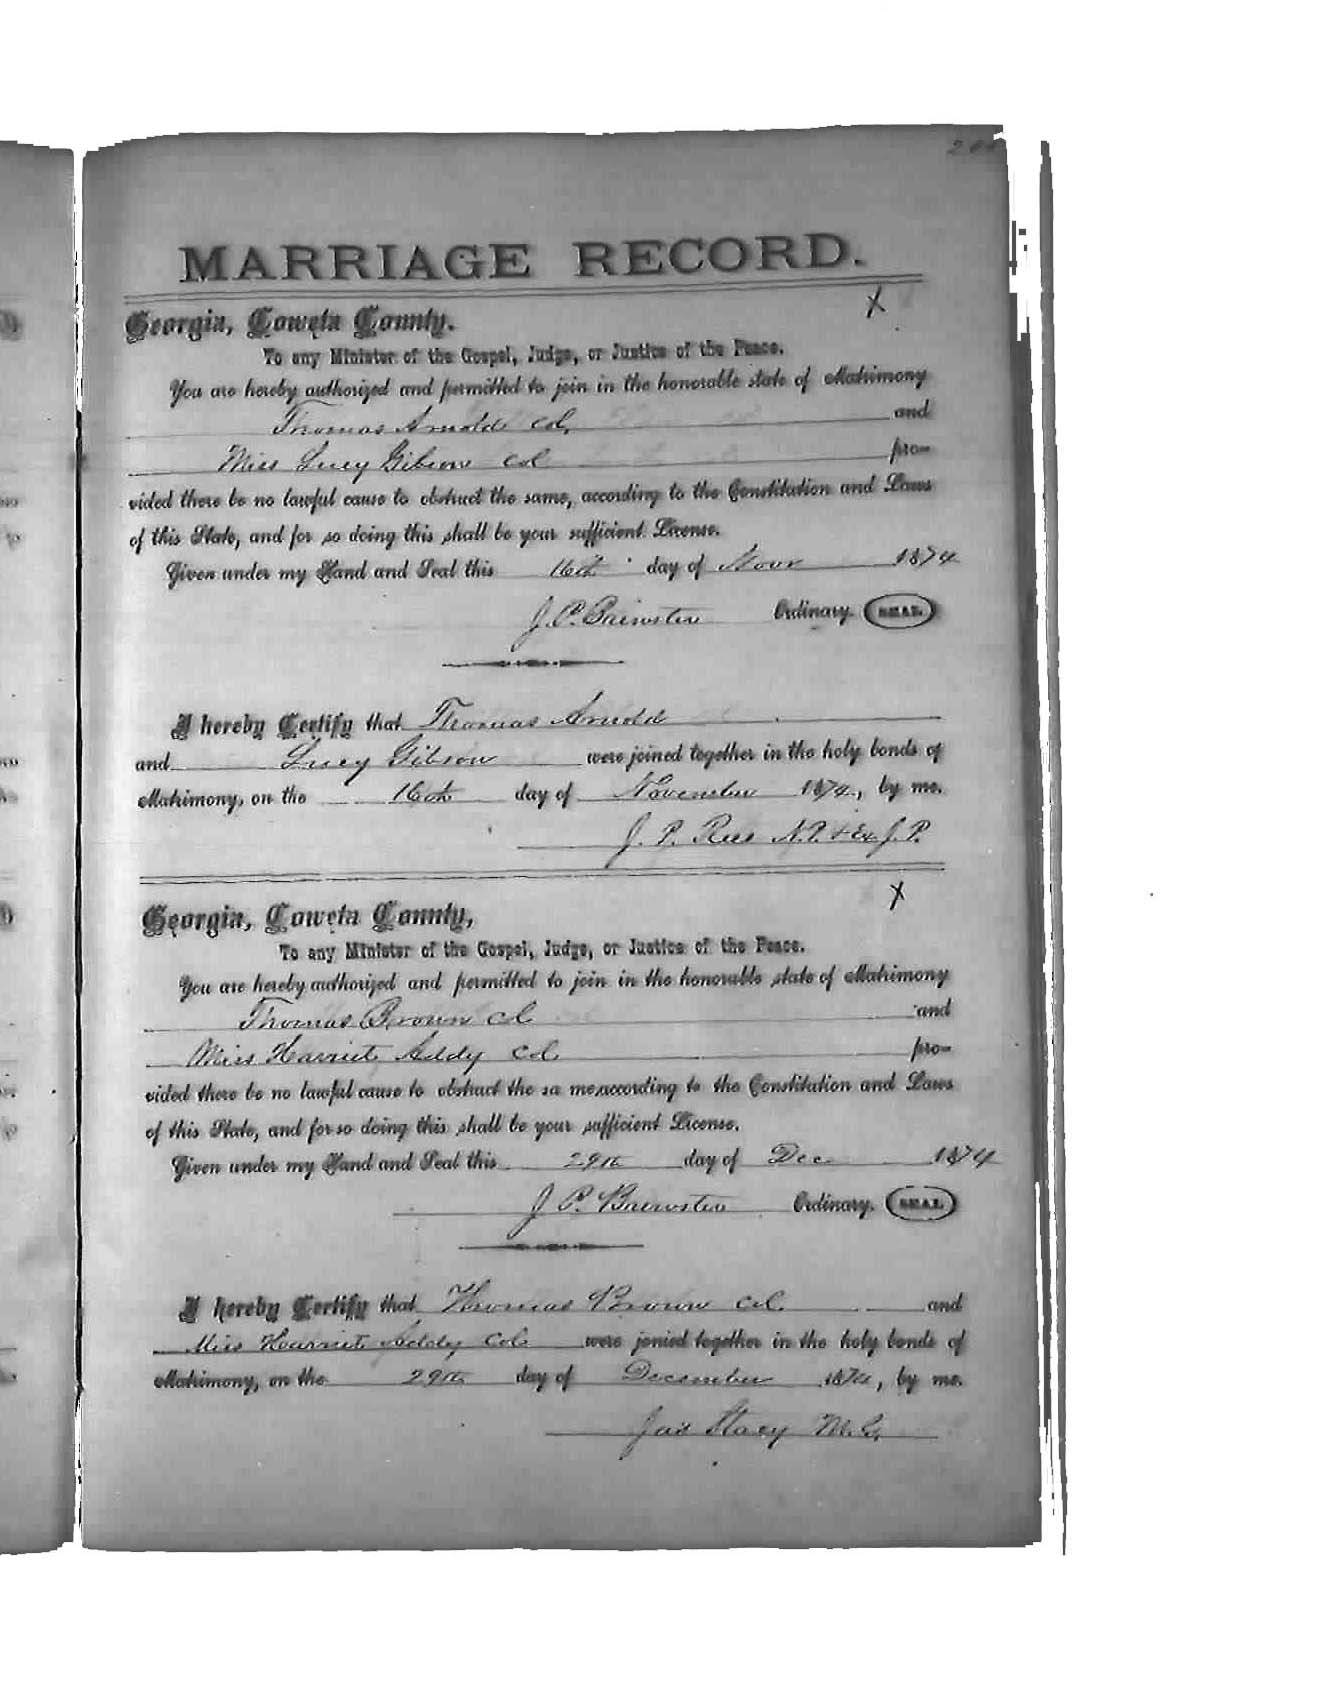 MARRIAGE RECORD.
X
Georgia, Coweta County.
To any Minister of the Gospel, Judge, or Justice of the Peace.
You are hereby authorized and permitted to join in the honorable state of Matrimony
Thomas Arnold col. and
Miss Lucy Gibson col pro-
vided there be no lawful cause to obstruct the same, according to the Constitution and Laws
of this State, and for so doing this shall be your sufficient License.
Given under my Hand and Seal this 16th day of Novr 1874
J. P. Brewster Ordinary. SEAL
I hereby Certify that Thomas Arnold
and Lucy Gibson were joined together in the holy bonds of
Matrimony, on the 16th day of November 1874, by me.
J. P. Rees N.P. & Ex J. P.
X
Georgia, Coweta County,
To any Minister of the Gospel, Judge, or Justice of the Peace.
You are hereby authorized and permitted to join in the honorable state of Matrimony
Thomas Brown col and
Miss Harriet Addy col pro-
vided there be no lawful cause to obstruct the sa me,according to the Constitution and Laws
of this State, and for so doing this shall be your sufficient License.
Given under my Hand and Seal this 29th day of Dec 1874
J P. Brewster Ordinary. SEAL
I hereby Certify that Thomas Brown col. and
Miss Harriet Addy col were jonied together in the holy bonds of
Matrimony, on the 29th day of December 1874, by me.
Jas Stacy M. G.